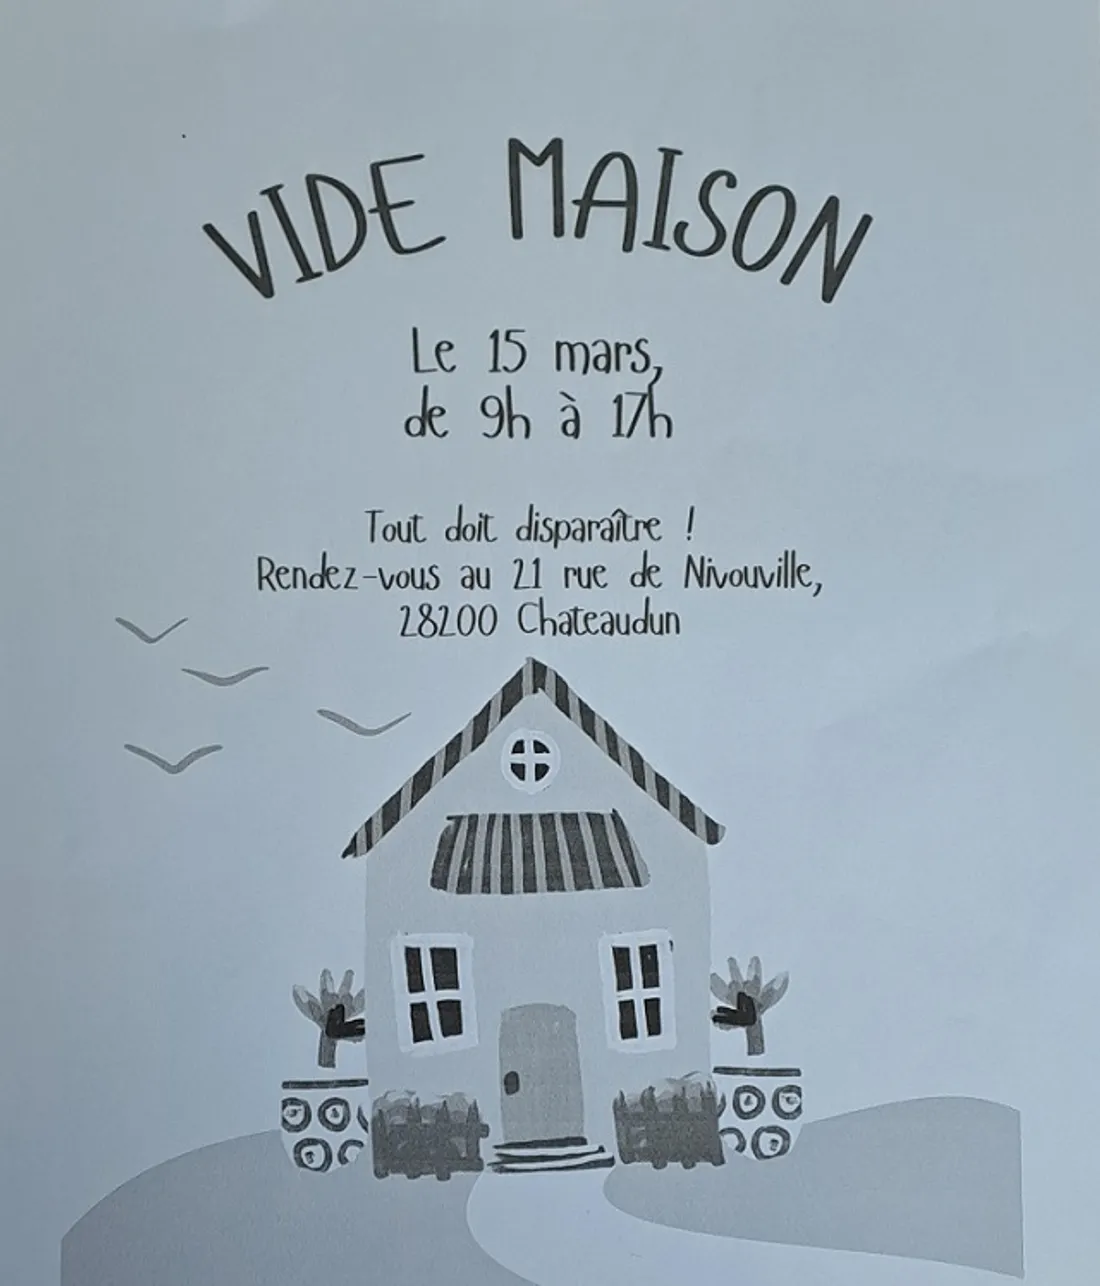 VIDE MAISON
Le 15 mars,
de 9h à 17h
Tout doit disparaître !
Rendez-vous au 21 rue de Nivouville,
28200 Chateaudun